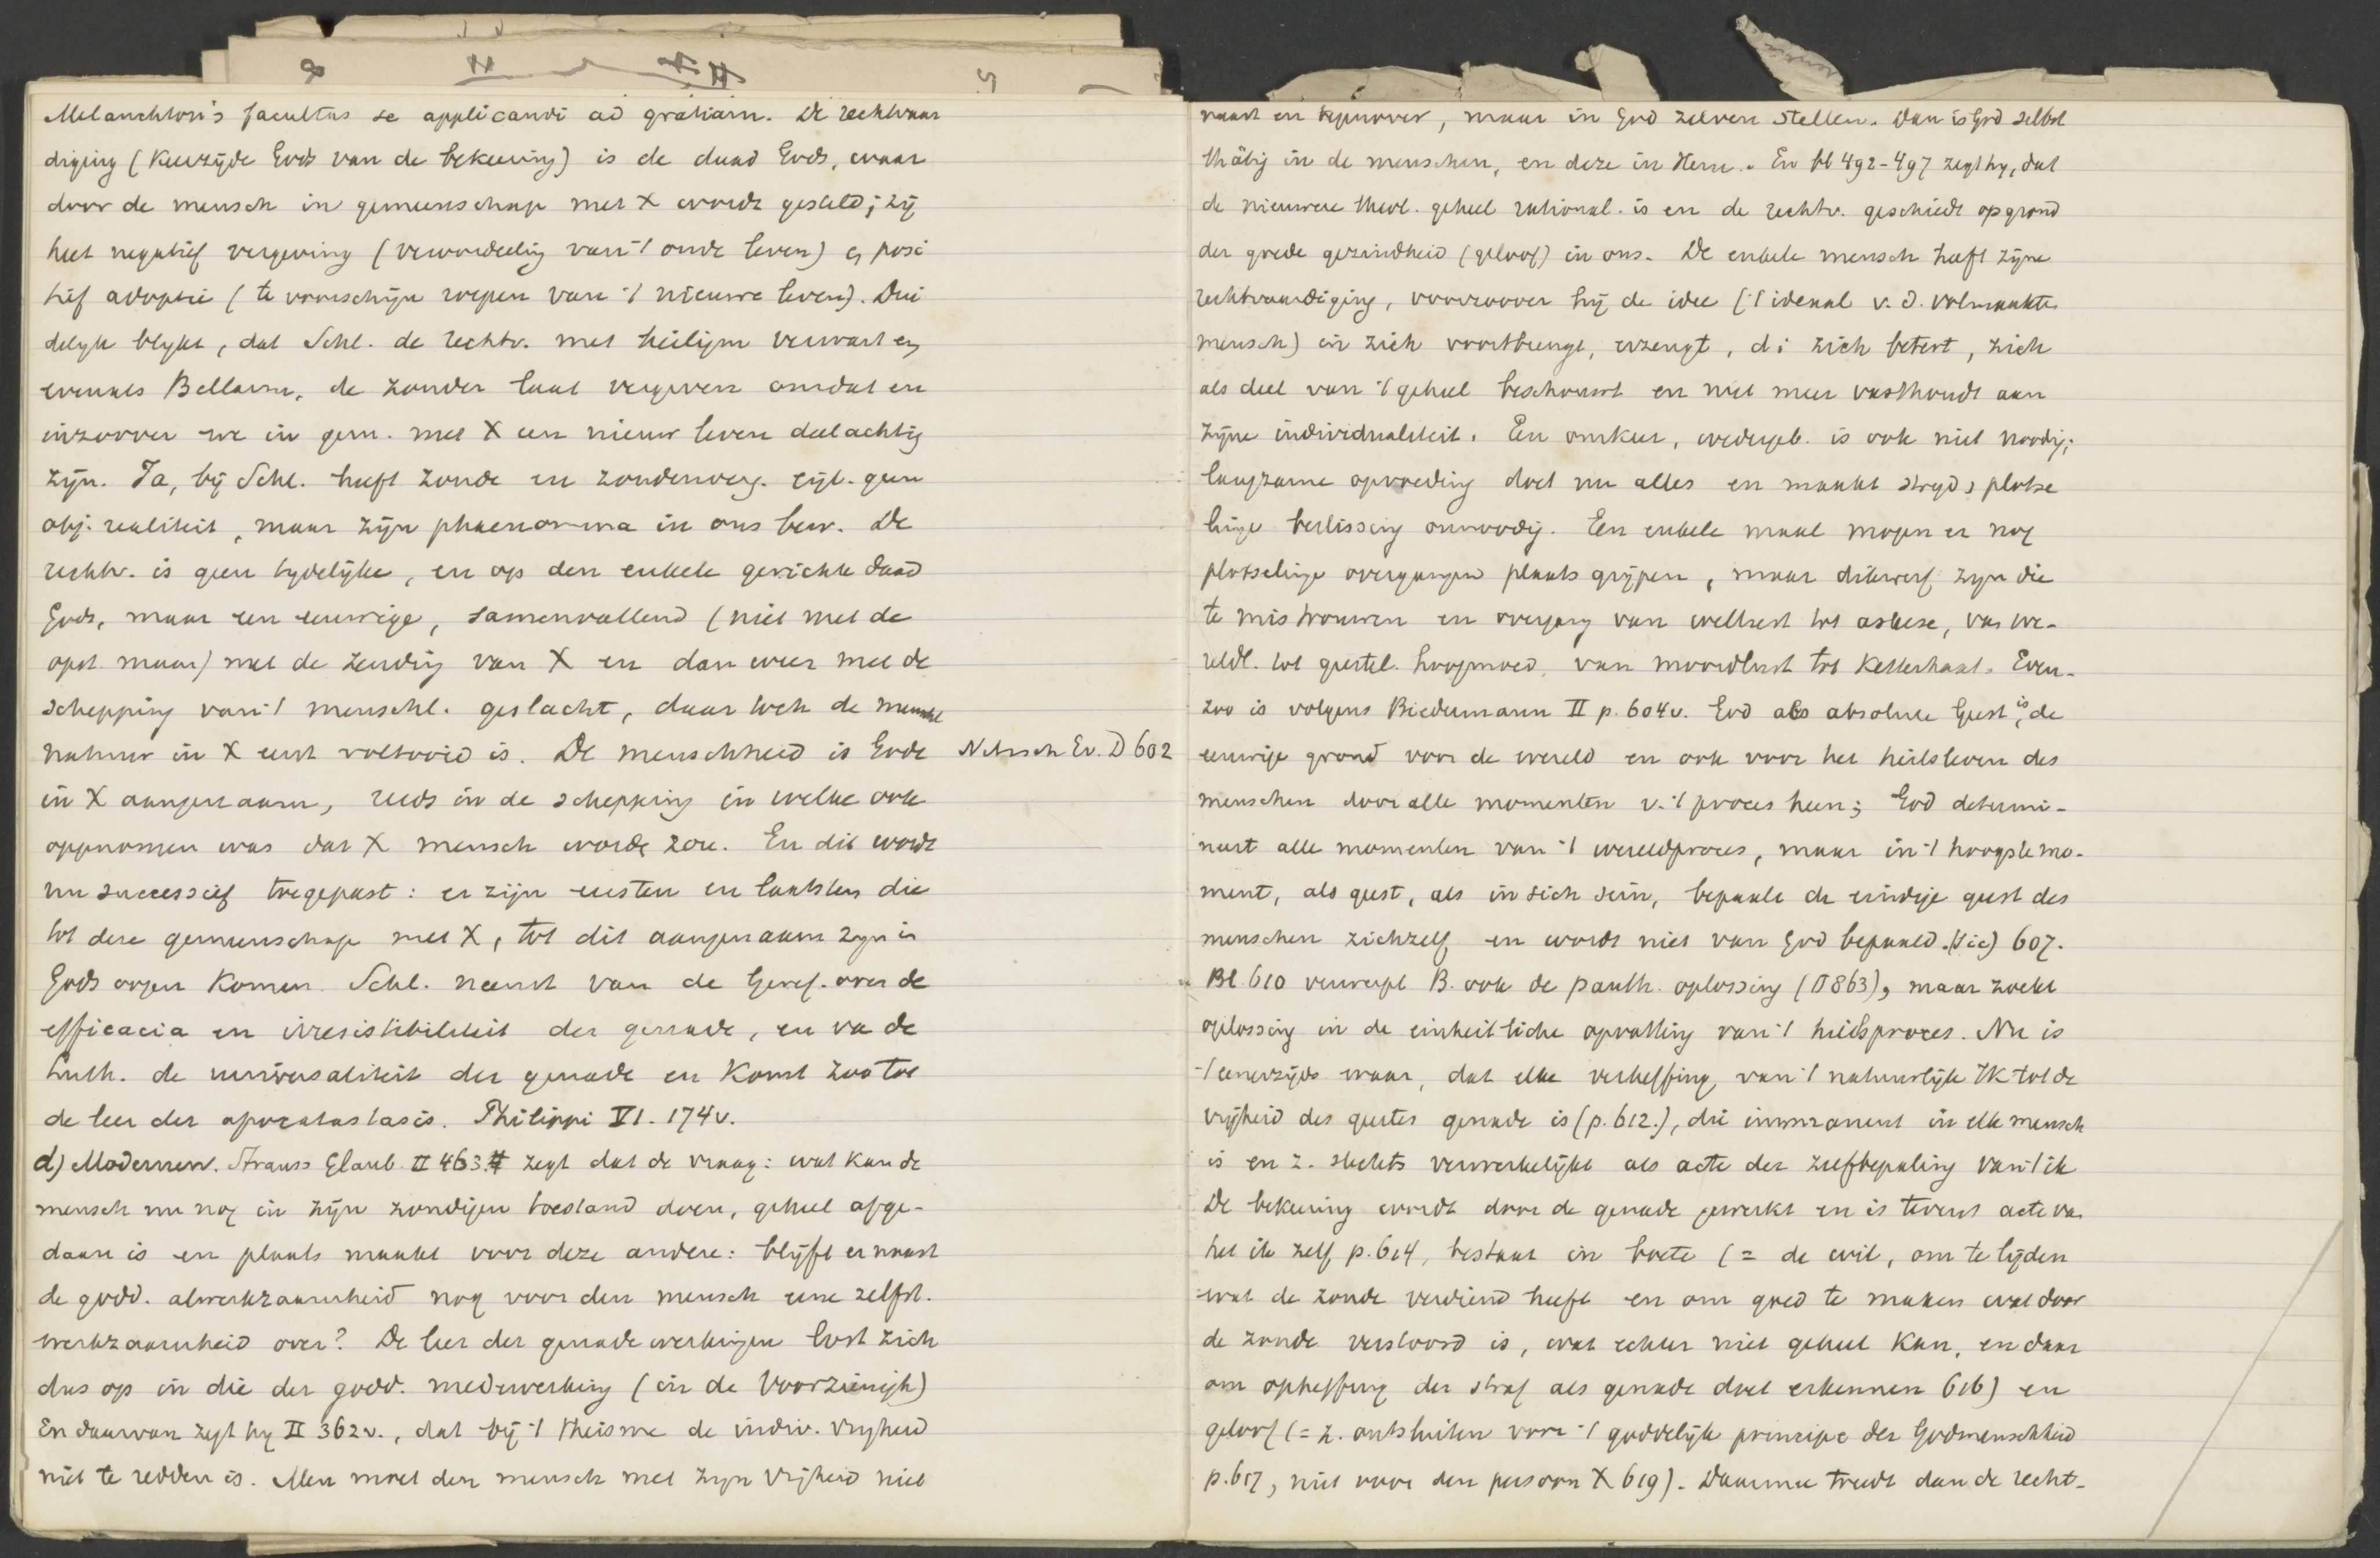 Melanchton's facultas se applicandi ad gratiam. De rechtvaar
diging (keerzijde Gods van de bekeering) is de daad Gods, waar
door de mensch in gemeenschap met X wordt gesteld; zij
heet negatief vergeving (veroordeelig van 't oude leven) en posi
tief adoptie (te voorschijn roepen van 't nieuwe leven). Dui
delijk blijkt, dat Schl. de rechtv. met heiligm verwart en
evenals Bellarm. de zonden laat vergeven omdat en
inzoover we in gem. met X een nieuw leven deelachtig
zijn. Ja, bij Schl. heeft zonde en zondenverg. eigl. geen
obj. realiteit, maar zijn phaenomena in ons bew. De
rechtv. is geen tydelijke, en op den enkele gerichte daad
Gods, maar een eeuwige, samenvallend (niet met de
opst. maar) met de zending van X en dan weer met de
schepping van 't menschl. geslacht, daar toch de menschl
natuur in X eerst voltooid is. De menschheid is Gode
Nitzsch Ev. D 602
in X aangenaam, reeds in de schepping in welke ook
opgenomen was dat X mensch worde zou. En dit wordt
nu successief toegepast: er zijn eersten en laatsten die
tot deze gemeenschap met X, tot dit aangenaam zyn in
Gods oogen komen. Schl. neemt van de Geref. over de
efficacia en irresistibiliteit der genade, en va de
Luth. de universaliteit der genade en komt zoo tot
de leer der apocatastasis. Philippi VI. 174v.
d) Modernen. Strauss Glaub. II 463 zegt dat de vraag: wat kan de
mensch nu nog in zijn zondigen toestand doen, geheel afge-
daan is en plaats maakt voor deze andere: blijft er naast
de godd. alwerkzaamheid nog voor den mensch eene zelfst.
werkzaamheid over? De leer der genadewerkingen lost zich
dus op in die der godd. medewerking (in de Voorzienigh)
En daarvan zegt hy II 362v., dat bij 't theisme de indiv. vryheid
niet te redden is. Men moet den mensch met zyn vrijheid niet
naast en tegenover, maar in God zelven stellen. Dan is God selbst
thätig in de menschen, en deze in Hem. En bl 492-497 zegt hy, dat
de nieuwere theol. geheel rational. is en de rechtv. geschiedt op grond
der goede gezindheid (geloof) in ons. De enkele mensch heeft zijne
rechtvaardiging, voorzoover hij de idee ('t ideaal v. d. volmaakte
mensch) in zich voortbrengt, erzeugt, di zich betert, zich
als deel van 't geheel beschouwt en niet meer vasthoudt aan
zijne individualiteit. En omkeer, wedergeb. is ook niet noodig;
langzame opvoeding doet nu alles en maakt strijd, plotse
linge beslissing onnoodig. Een enkele maal mogen er nog
plotselinge overgangen plaats grijpen, maar dikwerf zyn die
te mistrouwen en overgang van wellust tot askese, van we-
reldl. tot geestel. hoogmoed, van moordlust tot ketterhaat. Even-
zoo is volgens Biedermann II p. 604v. God als absolute Geest is, de
eeuwige grond voor de wereld en ook voor het heilsleven des
menschen door alle momenten v. 't proces heen; God determi-
neert alle momenten van 't wereldproces, maar in 't hoogste mo-
ment, als geest, als in sich sein, bepaalt de eindige geest des
menschen zichzelf en wordt niet van God bepaald. (sic) 607.
Bl. 610 verwerpt B. ook de panth. oplossing (§ 863), maar zoekt
oplossing in de einheitliche opvatting van 't heilsproces. Nu is
't eenerzijds waar, dat elke verheffing van 't natuurlijk IK tot de
vrijheid des geestes genade is (p. 612.), die immanent in elk mensch
is en z. slechts verwerkelijkt als acte der zelfbepaling van 't ik
De bekeering wordt door de genade gewerkt en is tevens acte va
het ik zelf p. 614, bestaat in boete (= de wil, om te lijden
wat de zonde verdiend heeft en om goed te maken wat door
de zonde verstoord is, wat echter niet geheel kan, en daar
om opheffing der straf als genade doet erkennen 616) en
geloof (= z. ontsluiten voor 't goddelijk principe der Godmenschheid
p. 617, niet voor den persoon X 619). Daarmee treedt dan de recht-